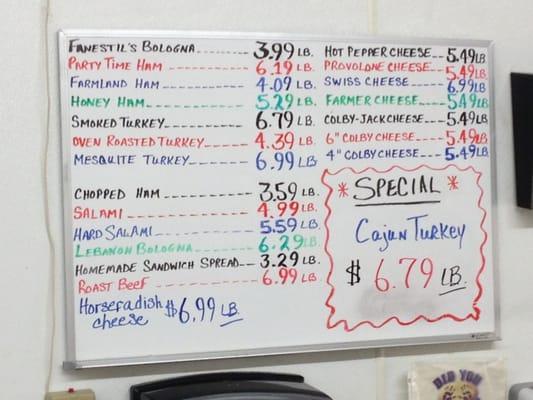 Fanestil's Bologna 3.99 LB.
Party Time Ham 6.19 LB.
Farmland Ham 4.09 LB.
Honey Ham 5.29 LB.
Smoked Turkey 6.79 LB.
Oven Roasted Turkey 4.39 LB.
Mesquite Turkey 6.99 LB
Chopped Ham 3.59 LB.
Salami 4.99 LB.
Hard Salami 5.59 LB.
Lebanon Bologna 6.29 LB
Homemade Sandwich Spread 3.29 LB.
Roast Beef 6.99 LB.
Horseradish
cheese $6.99 LB.
Hot Pepper Cheese 5.49 LB
Provolone Cheese 5.49 LB
Swiss Cheese 6.99 LB
Farmer Cheese 5.49 LB
Colby-Jack Cheese 5.49 LB
6" Colby Cheese 5.49 LB
4" Colby Cheese 5.49 LB
* SPECIAL *
Cajun Turkey
$6.79 LB.
DID YOU